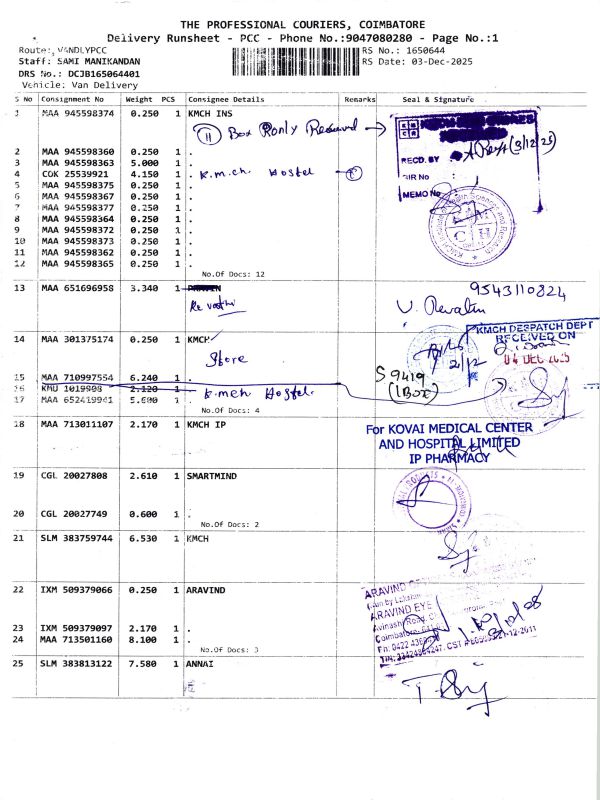 THE PROFESSIONAL COURIERS, COIMBATORE
Delivery Runsheet - PCC - Phone No.:9047080280 - Page No.:1
Route: VANDLYPCC RS No.: 1650644
Staff: SAMI MANIKANDAN RS Date: 03-Dec-2025
DRS No.: DCJB165064401
Vehicle: Van Delivery
S No Consignment No Weight PCS Consignee Details Remarks Seal & Signature
1 MAA 945598374 0.250 1 KMCH INS
11 Box Ronly Received
RECD. BY (3/12/25)
SIR No
MEMO No
2 MAA 945598360 0.250 1 .
3 MAA 945598363 5.000 1 .
4 COK 25539921 4.150 1 . K.m.ch. Hostel
5 MAA 945598375 0.250 1 .
6 MAA 945598367 0.250 1 .
7 MAA 945598377 0.250 1 .
8 MAA 945598364 0.250 1 .
9 MAA 945598372 0.250 1 .
10 MAA 945598373 0.250 1 .
11 MAA 945598362 0.250 1 .
12 MAA 945598365 0.250 1 .
No.Of Docs: 12
13 MAA 651696958 3.340 1
Revathi
9543110824
V. Revathi
14 MAA 301375174 0.250 1 KMCH
Store
KMCH DESPATCH DEPT
RECEIVED ON
04 DEC 2025
15 MAA 710997554 6.240 1 .
S 9419
(1Box)
16 KMU 1019908 2.120 1 . K.mch Hostel.
17 MAA 652419941 5.600 1 .
No.Of Docs: 4
18 MAA 713011107 2.170 1 KMCH IP
For KOVAI MEDICAL CENTER
AND HOSPITAL LIMITED
IP PHARMACY
19 CGL 20027808 2.610 1 SMARTMIND
20 CGL 20027749 0.600 1 .
No.Of Docs: 2
21 SLM 383759744 6.530 1 KMCH
22 IXM 509379066 0.250 1 ARAVIND
ARAVIND
ARAVIND EYE
Avinashi Road,
Coimbatore
23 IXM 509379097 2.170 1 .
24 MAA 713501160 8.100 1 .
No.Of Docs: 3
25 SLM 383813122 7.580 1 ANNAI